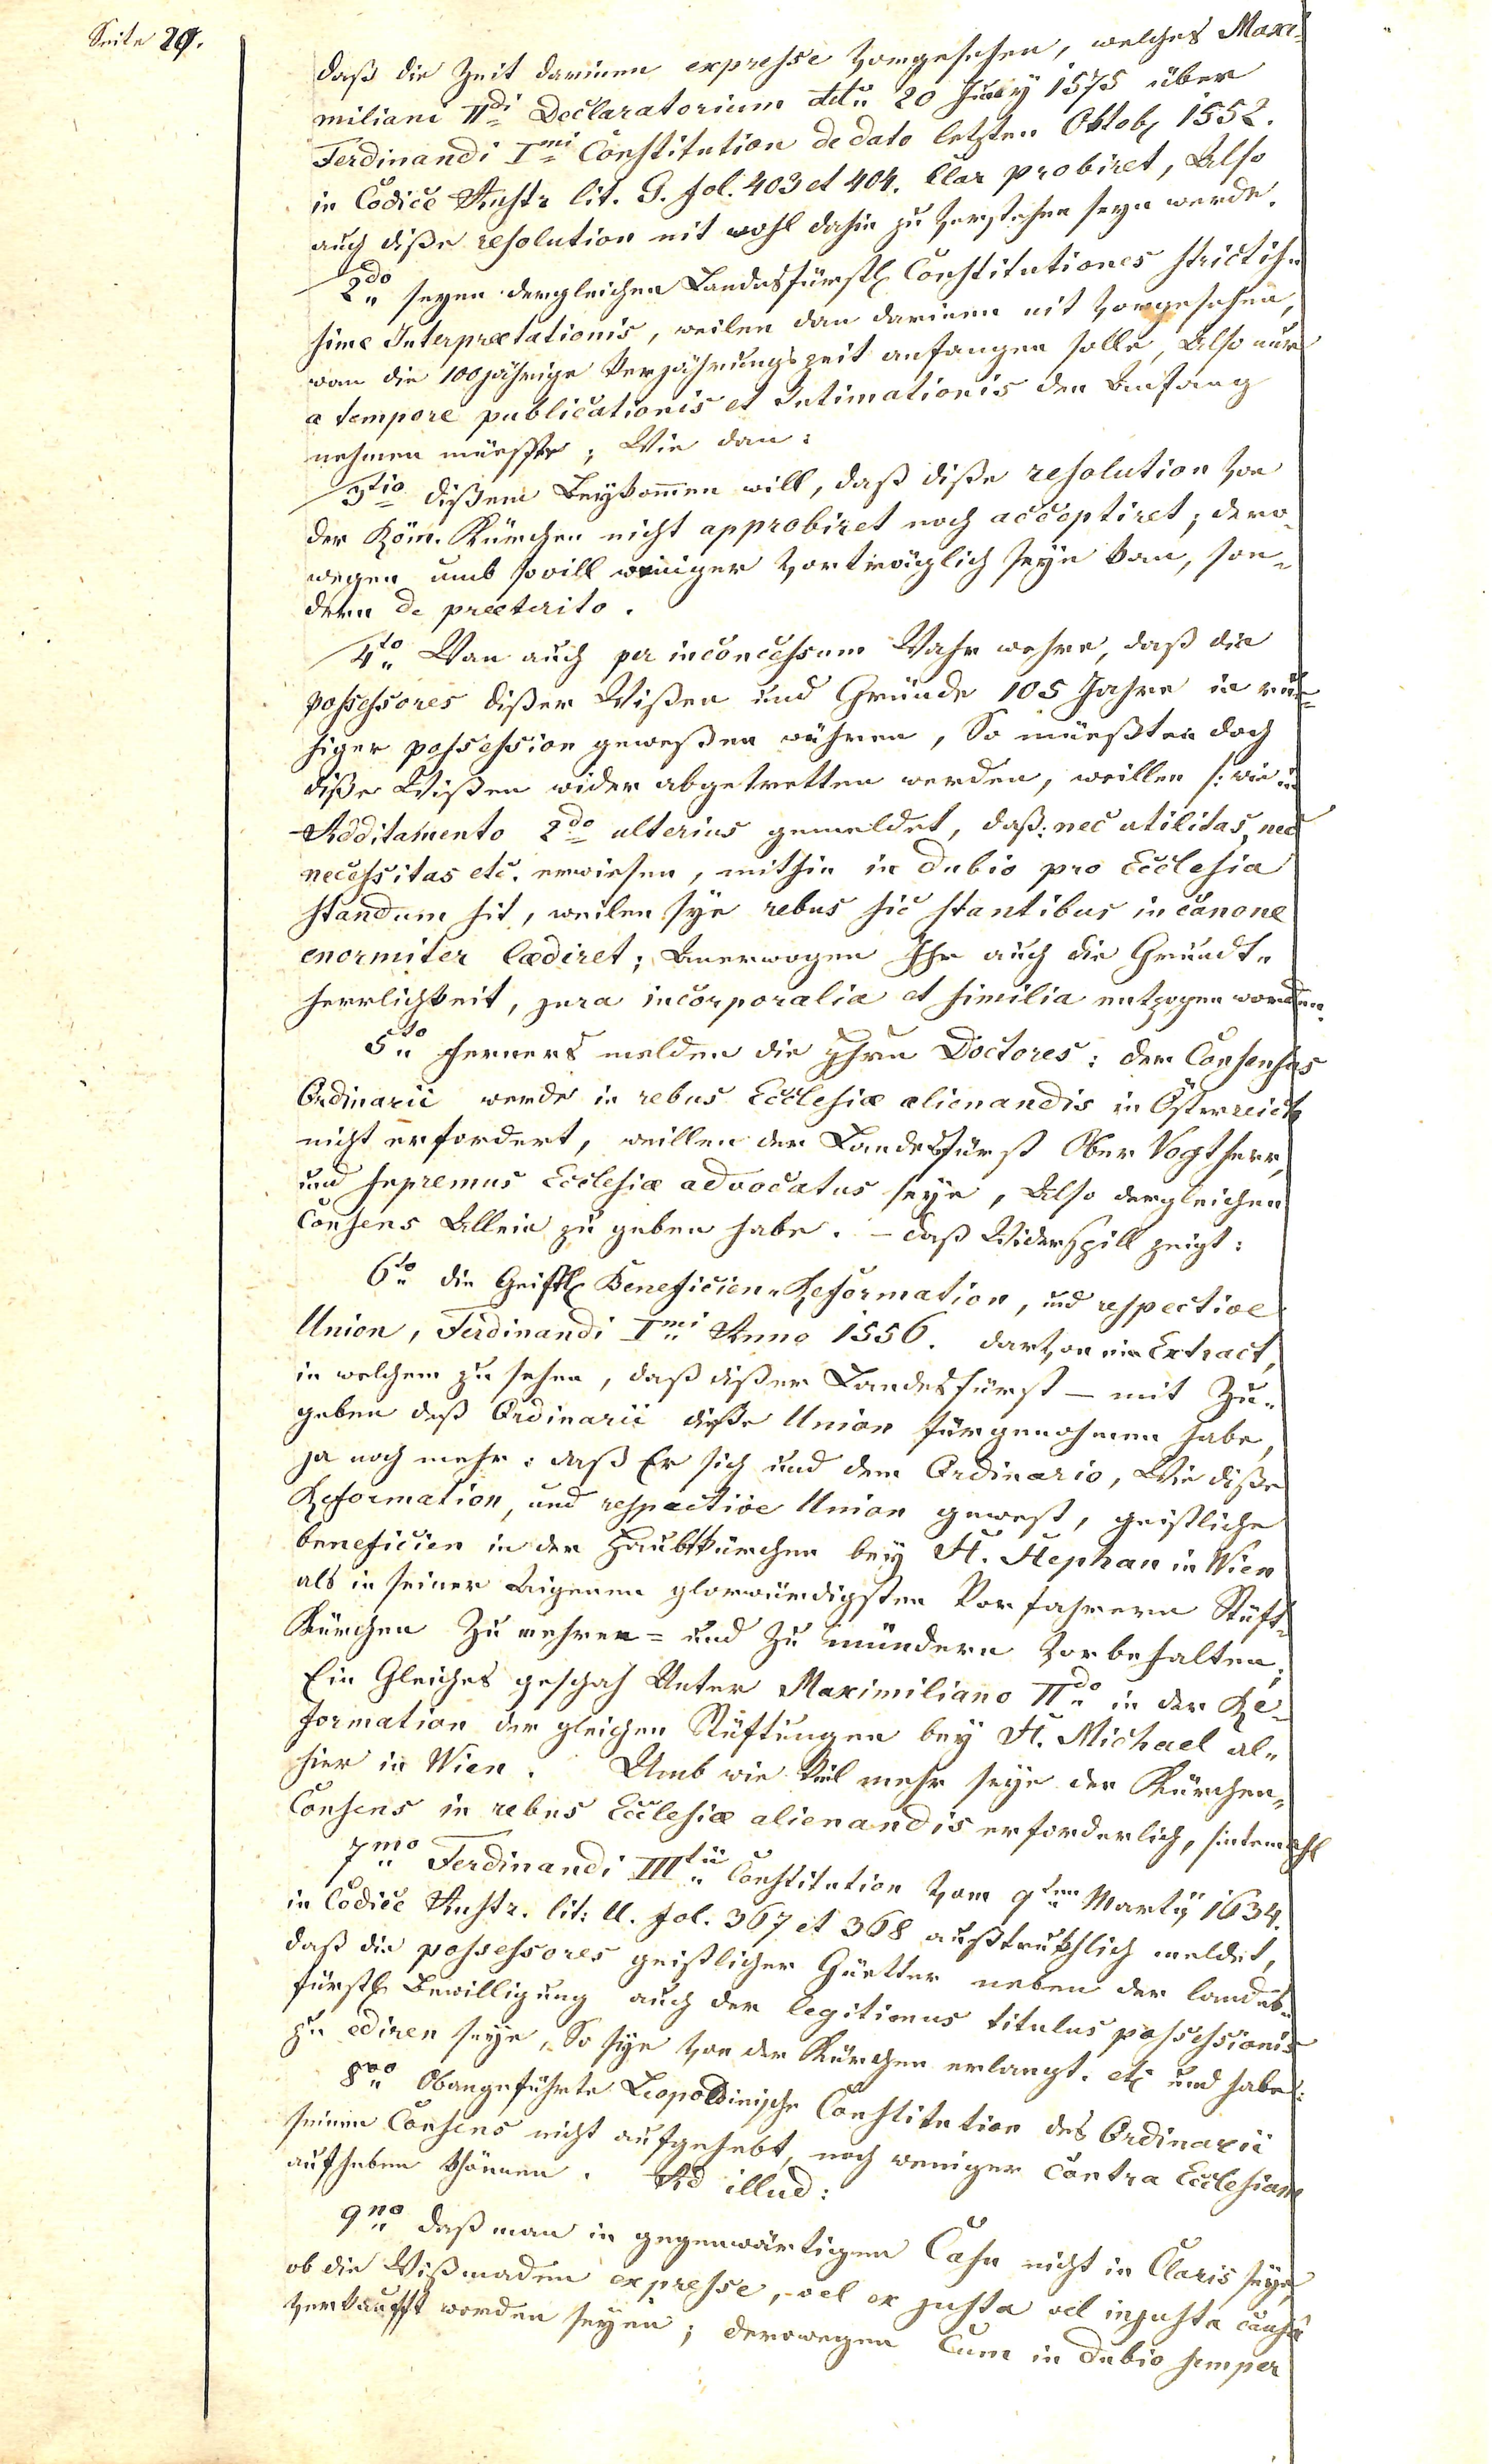 Seite 29.
daß die Zeit darinnen expresse vorgesehen, welches Maxi-
miliani IIdi Declaratorium ddtu 20 July 1575 über
Ferdinandi Imi Constitution de dato letzten Oktob 1552.
in Codice Austr lit. G. fol. 403 et 404. klar probiret, Also
auch diße resolution nit wohl dahin zu verstehen seyn werde.
2do seyen dergleichen Landesfürstl Constitutiones strictis-
simé Interprætationis, weilen dan darinnen nit vorgesehen,
wan die 100jährige Verjährungszeit anfangen solle, Also nur
a tempore publicationis et Intimationis den Anfang
nehmen müesste; Wie dan:
3tio dißem Beykommen will, daß diße resolution von
der Röm. Kürchen nicht approbiret noch acceptiret; dero-
wegen umb sovill weniger vorträglich seye kan, son-
dern de præterito.
4to Wan auch per inconcessum Wahr wehre, daß die
possessores dißer Wißen und Gründe 105 Jahre in rue-
higer possession geweßen währen, So müeßten doch
diße Wißen wider abgetretten werden, weillen /: wie in
Additamento 2do ulterius gemeldet, daß: nec utilitas, nec
necessitas etc. erwiesen, mithin in dubio pro Ecclesia
standum sit, weilen sye rebus sic stantibus in canone
enormiter lædiret; Anerwogen Ihr auch die Grundt-
herrlichkeit, jura incorporalia et similia entzogen worden.
5to ferners melden die Ihrn Doctores: der Consensus
Ordinarii werde in rebus Ecclesiæ alienandis in Österreich
nicht erfordert, weillen der Landesfürst Ober Vogtherr,
und supremus Ecclesiæ advocatus seye, Also dergleichen
Consens Allein zu geben habe. – daß Widerspill zeigt:
6to die Geistl Beneficien-Reformation, und respective
Union, Ferdinandi Imi Anno 1556. darvon ein Extract,
in welchem zu sehen, daß dißer Landesfürst – mit Zu-
geben deß Ordinarii dieße Union fürgenohmen habe,
ja noch mehr: daß Er sich und dem Ordinario, Wie diße
Reformation, und respective Union gewest, geistliche
beneficien in der Haubtkürchen bey St. Stephan in Wien
als in seiner Aigenen glorwürdigsten Vorfahrern Stüft-
Kürchen Zu mehren= und Zu mündern vorbehalten;
Ein Gleiches geschah Unter Maximiliano IIdo in der Re-
formation der gleichen Stüftungen bey St. Michael al-
hier in Wien. Umb wie Viel mehr seye der Kürchen-
Consens in rebus Ecclesiæ alienandis erforderlich, sintemahl
7mo Ferdinandi IIItii Constitution vom 9ten Marty 1634.
in Codice Austr. lit: U. fol. 367 et 368 außtrukhlich meldet,
daß die possessores geistlicher Güetter neben der landes-
fürstl Bewilligung auch der legitimus titulus possessionis
zu ediren seye, So sye von der Kürchen erlangt. etc und habe:
8vo Obangeführte Leopoldinische Constitution des Ordinarii
seinen Consens nicht aufgehebt, noch weniger contra Ecclesiam
aufheben khönnen. Ad illud:
9no daß man in gegenwärtigen Casu nicht in Claris seye,
ob die Wißmaden expresse, vel ex justa vel injusta causa
verkaufft worden seyen; derowegen Cum in dubio semper